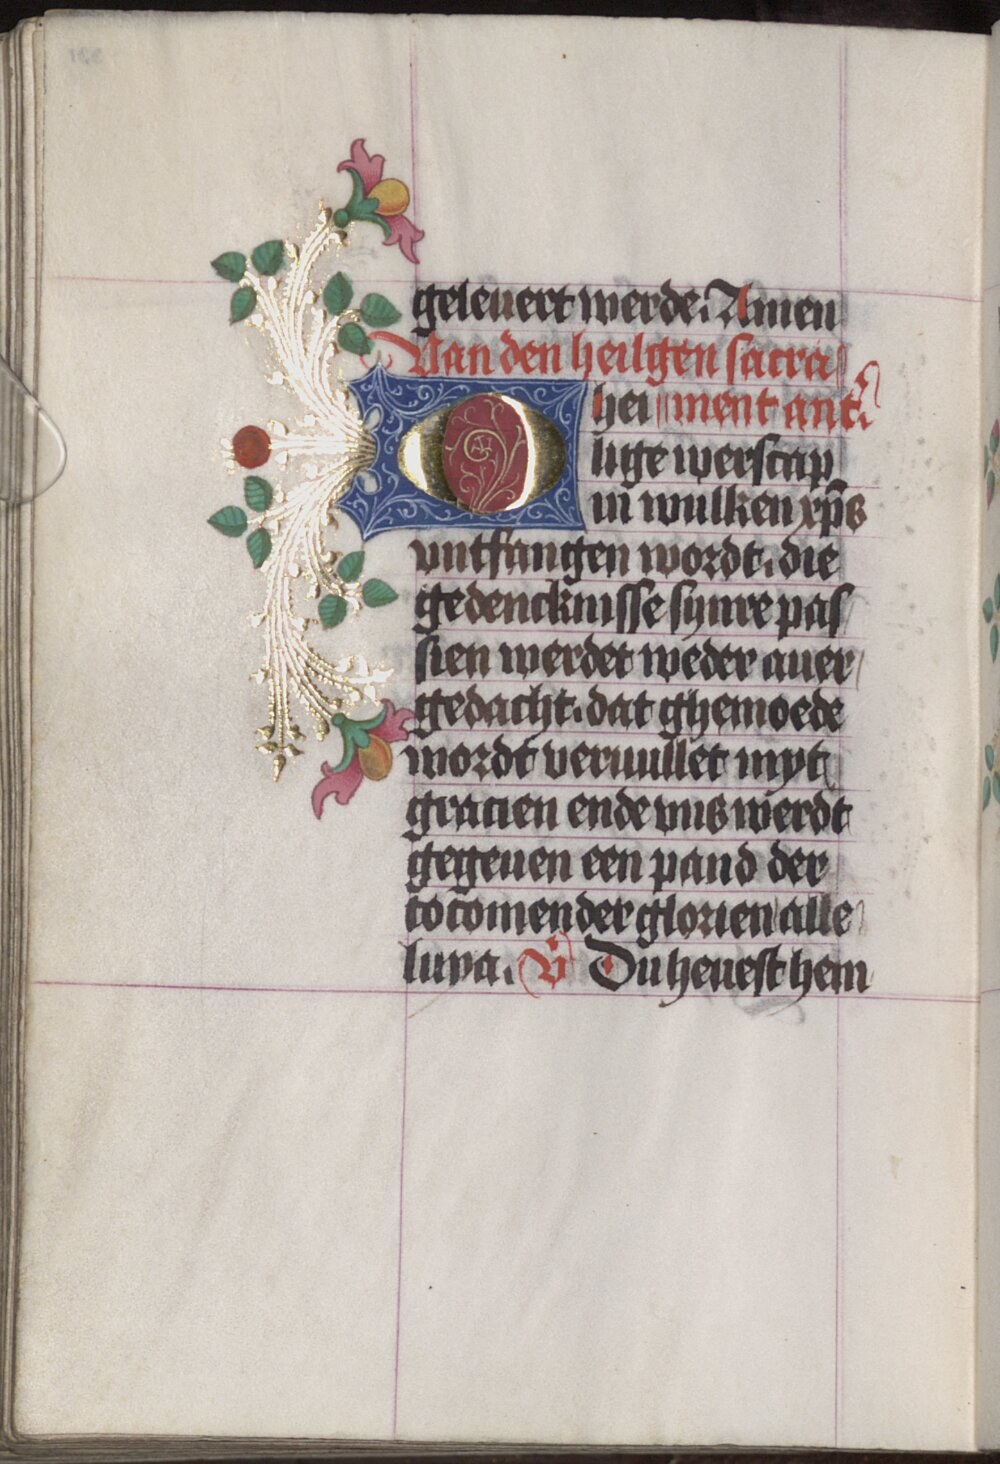 geleuert werde. Amen
Van den heilgen sacra
O hei ment ant.
lige werscap
in wulken xp̄s
vntfangen wordt. die
gedencknisse synre pas
sien werdet weder auer
gedacht. dat ghemoede
wordt veruullet myt
gracien ende vns werdt
gegeuen een pand der
tocomender glorien alle
luya. V Du heuest hem